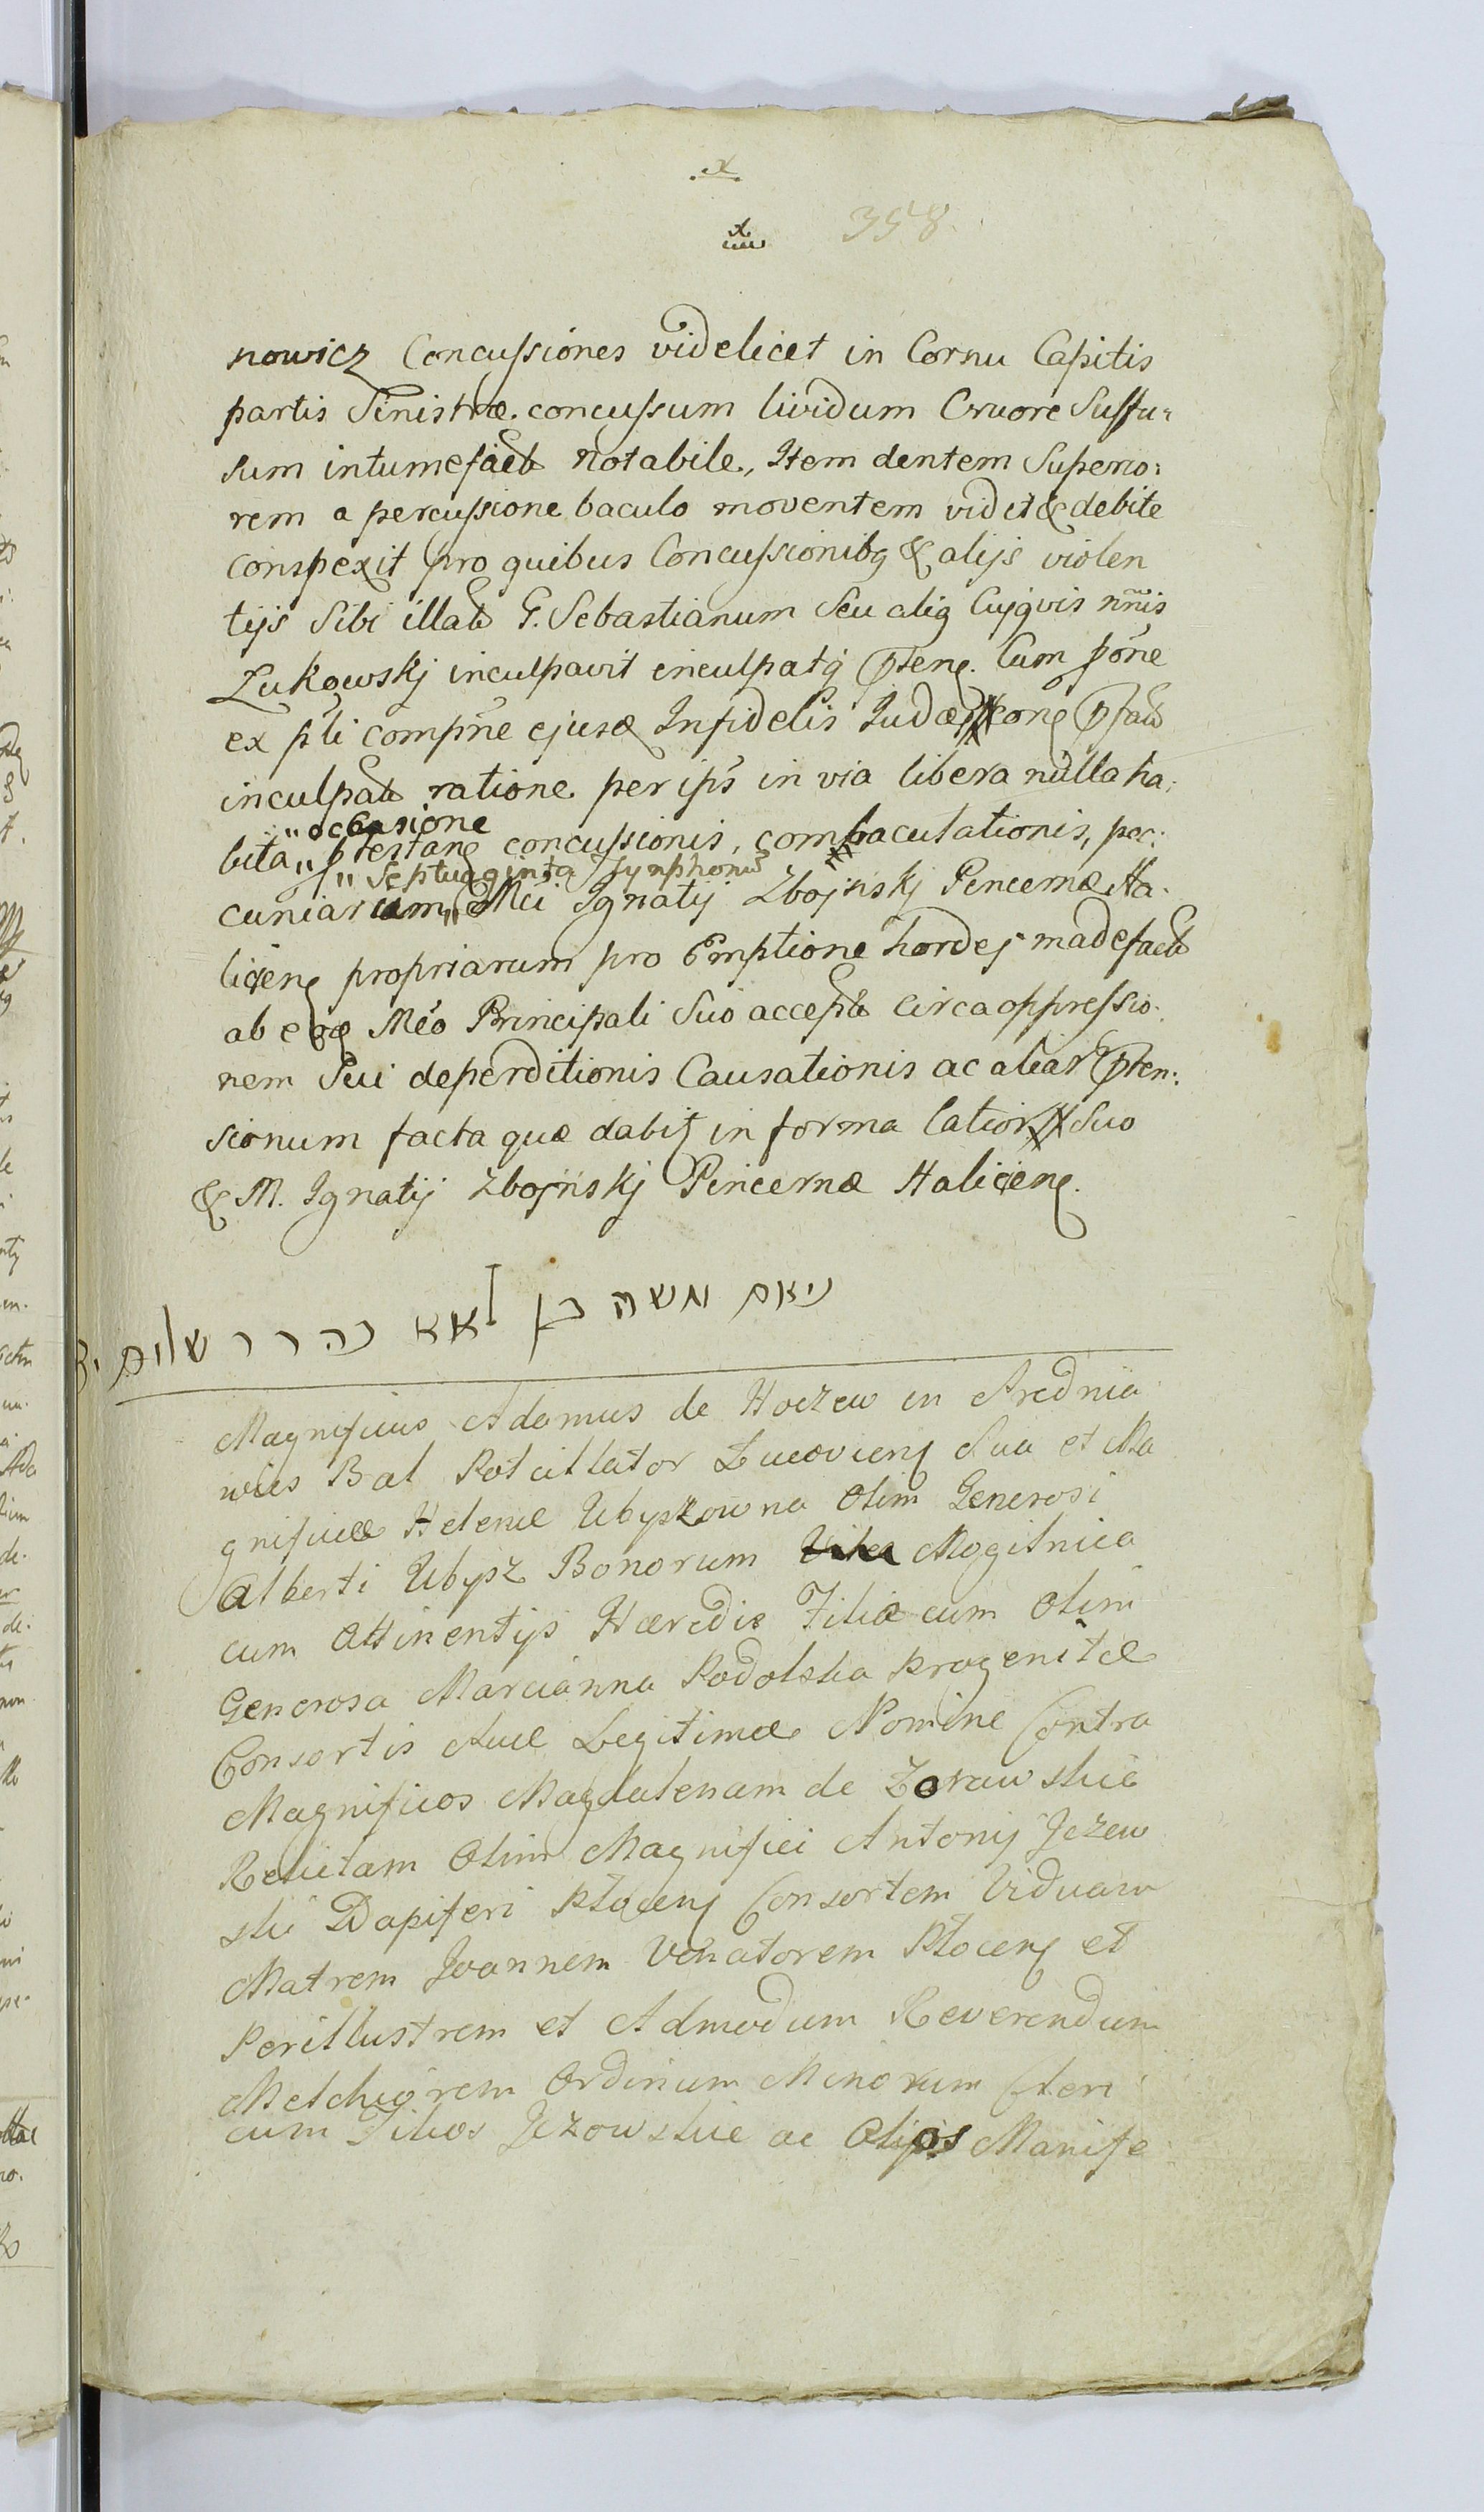 x
x
358.
nowicz Concussiones videlicet in Cornu Capitis
partis Sinistræ concussum lividum Cruore Suffu:
sum intumefact notabile, Item dentem Superio:
rem a percussione baculo moventem vidit & debite
conspexit pro quibus Concussionibg & alijs violen
tijs Sibi illat G. Sebastianum Seu alig Cujgvis nnis
Zukowskj inculpavit inculpatg Cum pone
ex pti compne ejusd Infidelis Judæj
inculpat ratione per ips in via libera nulla ha:
"occasione
bita" concussionis, combaculationis, pec:
"Septuaginta Tynphonu
cuniarum" Mci Ignatij Zbojnskj Pincernæ Ha:
licien propriarum pro Emptione hordej madefact
ab eod Mco Principali Suo accept circa oppressio:
nem Sui deperditionis Causationis ac aliar pten:
sionum facta quæ dabit in forma latiori Suo
& M. Ignatij Zbojnskj Pincernæ Halicien.
ניאם משה בן לאא נהרר שלום
Magnificus Adamus de Hoczew in Srednia
wies Bal Potcillator Lucovien Sua et Ma
gnificæ Helenæ Ubyszowna Olim Generosi
Alberti Ubysz Bonorum Mogilnica
cum Attinentijs Hæredis Filiæ cum Olim
Generosa Marcianna Podolska progenitæ
Consortis Suæ Legitimæ Nomine Contra
Magnificos Magdalenam de Zorawskie
Relictam Olim Magnifici Antonij Jezew
ski Dapiferi Plocen Consortem Viduam
Matrem Joannem Venatorem Plocen et
Perillustrem et Admodum Reverendum
Melchiorem Ordinum Minorum Cleri
cum Filios Jezowskie ac Alios Manife